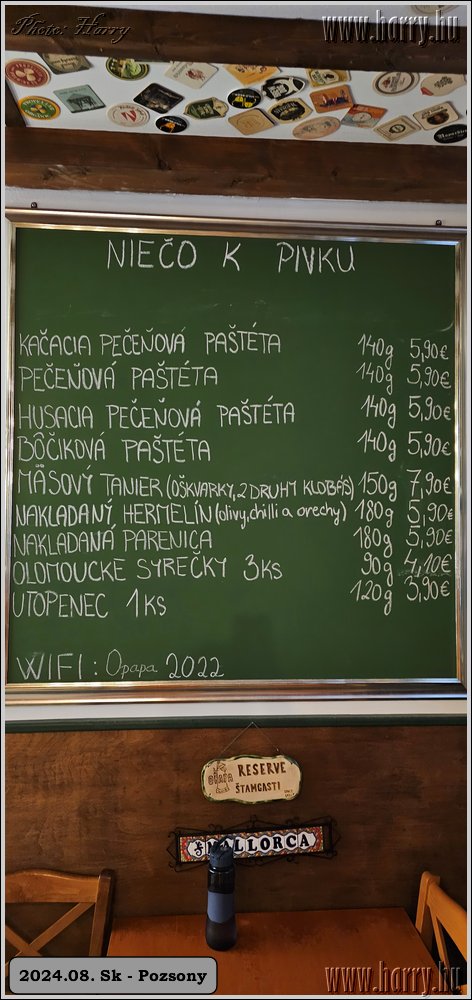 Photo: Harry
www.harry.hu
NIEČO K PIVKU
KAČACIA PEČEŇOVÁ PAŠTÉTA 140g 5,90€
PEČEŇOVÁ PAŠTÉTA 140g 5,90€
HUSACIA PEČEŇOVÁ PAŠTÉTA 140g 5,90€
BÔČIKOVÁ PAŠTÉTA 140g 5,90€
MÄSOVÝ TANIER (OŠKVARKY, 2 DRUHY KLOBÁS) 150g 7,90€
NAKLADANÝ HERMELÍN (olivy, chilli a orechy) 180g 5,90€
NAKLADANÁ PARENICA 180g 5,90€
OLOMOUCKE SYREČKY 3KS 90g 4,10€
UTOPENEC 1KS 120g 3,90€
WIFI: Opapa 2022
RESERVE
ŠTAMGASTI
MALLORCA
2024.08. Sk - Pozsony
www.harry.hu